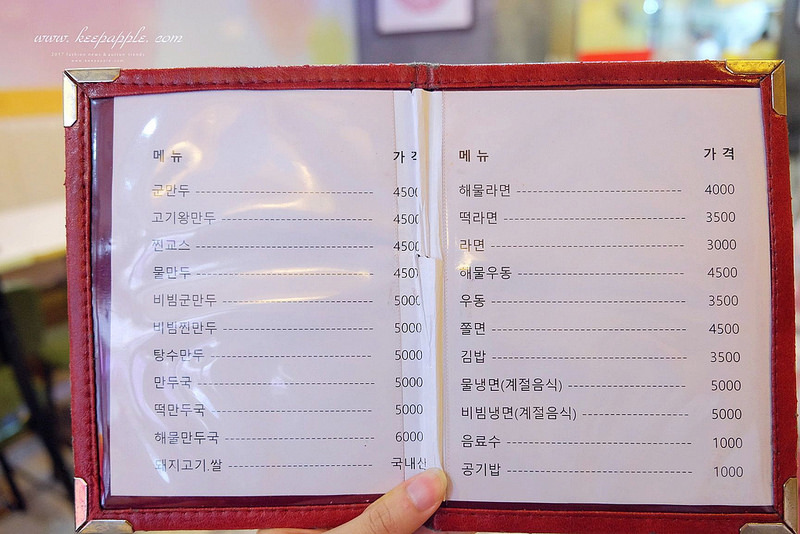 www. keepapple. com
메 뉴 가 격
군만두 4500
고기왕만두 4500
찐교스 4500
물만두 4500
비빔군만두 5000
비빔찐만두 5000
탕수만두 5000
만두국 5000
떡만두국 5000
해물만두국 6000
돼지고기.쌀 국내산
메 뉴 가 격
해물라면 4000
떡라면 3500
라면 3000
해물우동 4500
우동 3500
쫄면 4500
김밥 3500
물냉면(계절음식) 5000
비빔냉면(계절음식) 5000
음료수 1000
공기밥 1000